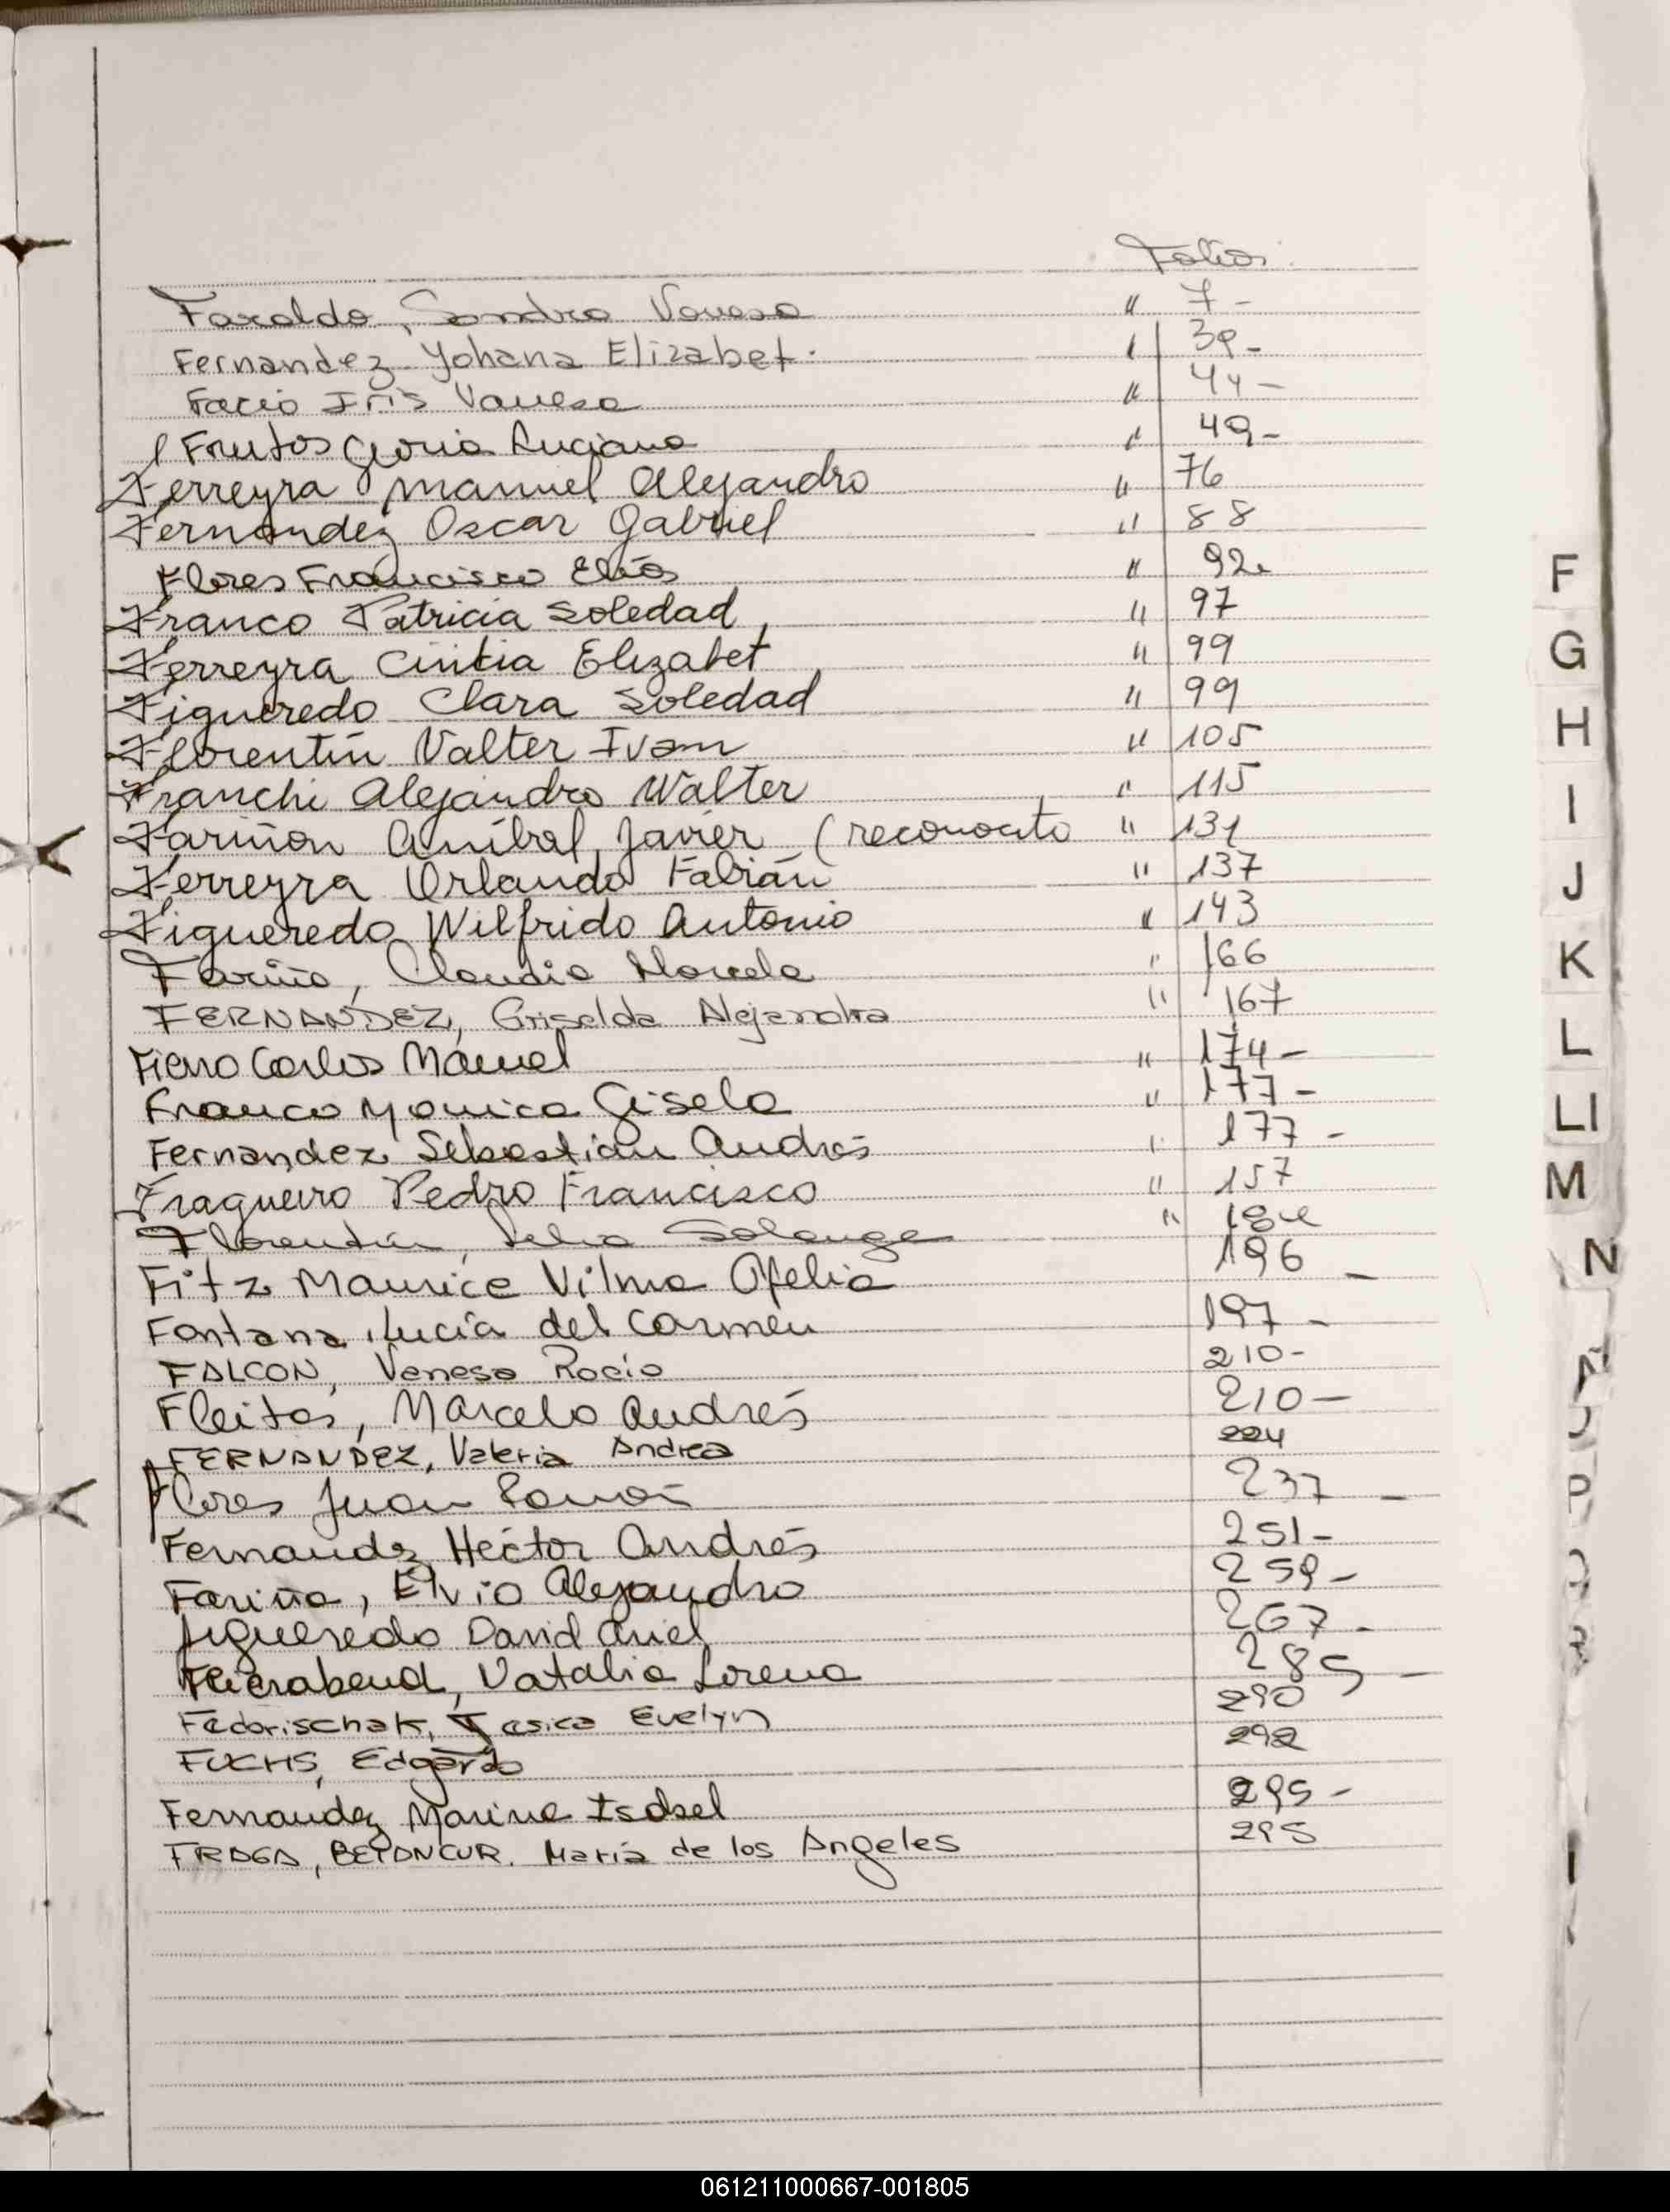 Folios
Faraldo, Sandra Vanesa " 7-
Fernandez Yohana Elizabet. " 39-
Facio Iris Vanesa " 44-
Frutos Gloria Luciana " 49-
Ferreyra Manuel Alejandro " 76
Fernández Oscar Gabriel " 88
Flores Francisco Elías " 92
Franco Patricia Soledad " 97
Ferreyra Cintia Elizabet " 99
Figueredo Clara Soledad " 99
Florentín Valter Ivan " 105
Franchi Alejandro Walter " 115
Fariñon Anibal Javier (reconocito " 131
Ferreyra Orlando Fabián " 137
Figueredo Wilfrido Antonio " 143
Fariña, Claudia Marcela " 166
FERNANDEZ, Griselda Alejandra " 167
Fierro Carlos Manuel " 174-
Franco Monica Gisela " 177-
Fernandez Sebastián Andrés " 177-
Fragueiro Pedro Francisco " 157
Florentín, Solange "
Fitz Maurice Vilma Ofelia 196-
Fontana Lucía del Carmen 197-
FALCON, Vanesa Rocio 210-
Fleitas, Marcelo Andrés 210-
FERNANDEZ, Valeria Andrea 224
Flores Juan Ramón 237-
Fernandez Héctor Andrés 251-
Fariña, Elvio Alejandro 259-
Figueredo David Ariel 267-
Feierabend, Natalia Lorena 285-
Fedorischak, Jesica Evelyn 290
FUCHS, Edgardo 292
Fernandez Marina Isabel 295-
FRAGA, BETANCUR. María de los Angeles 295
F
G
H
I
J
K
L
LI
M
N
P
061211000667-001805